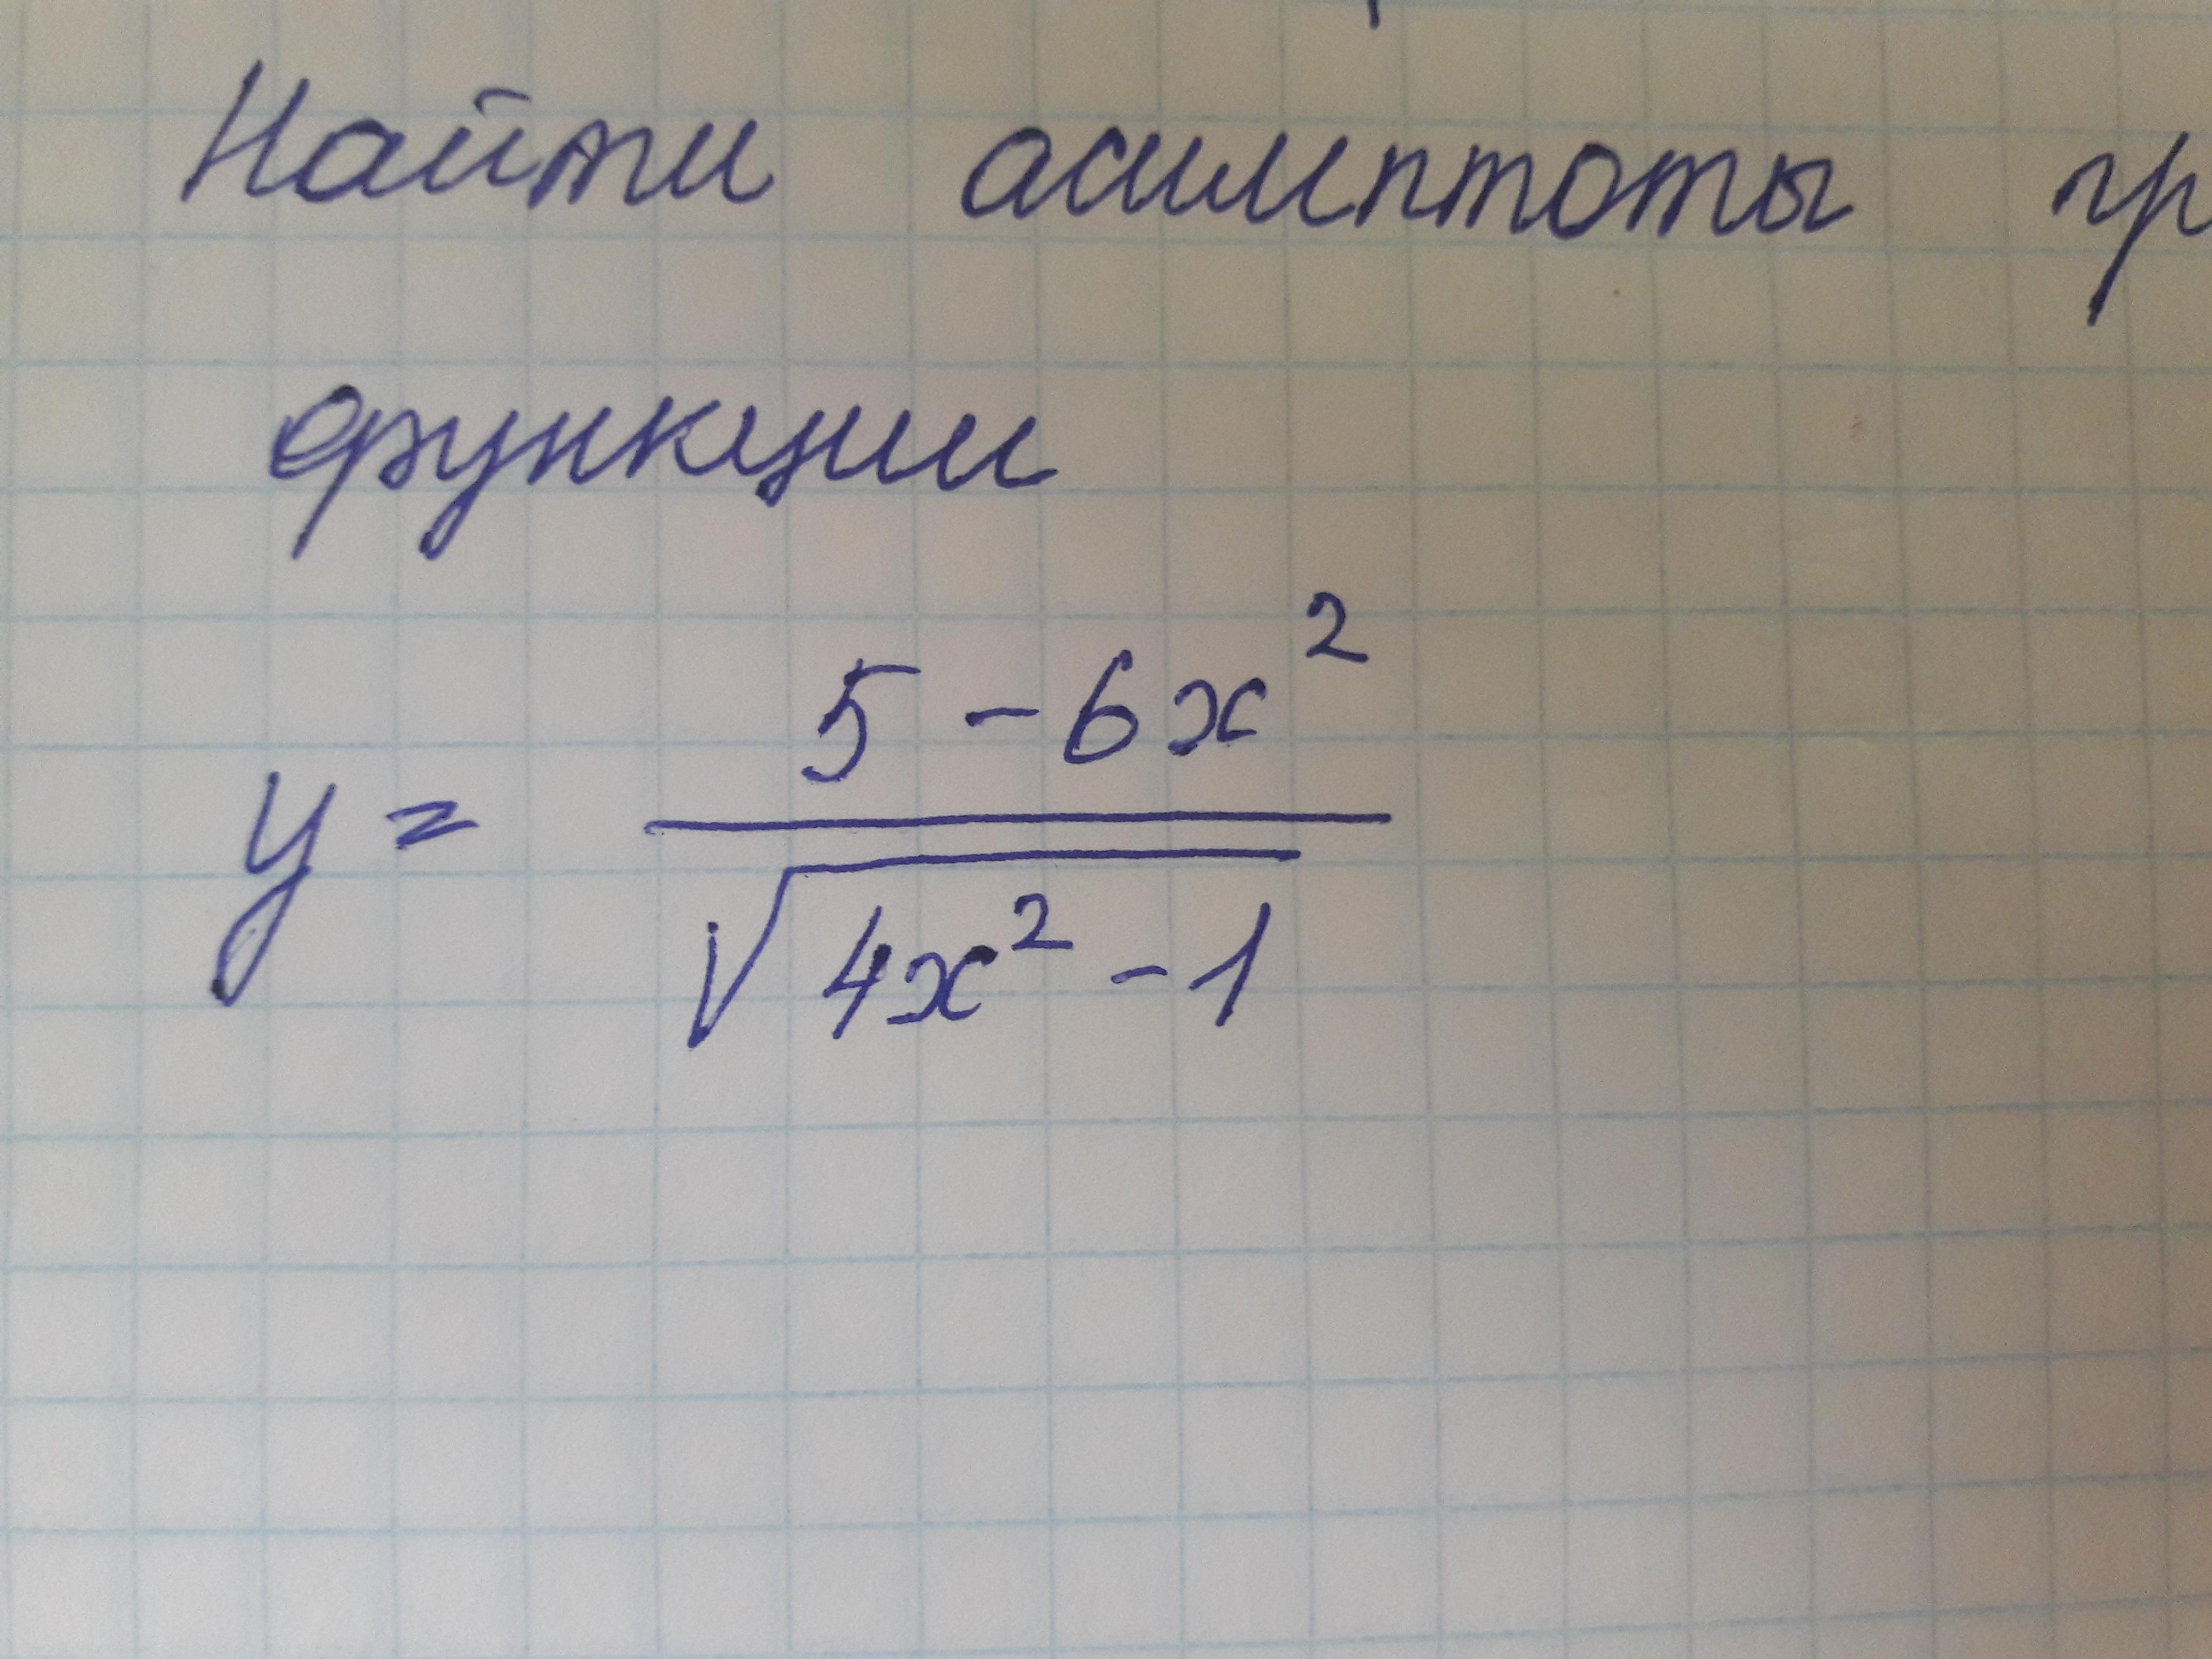 Найти асимптоты гр
функции
y = \frac{5 - 6x^2}{\sqrt{4x^2 - 1}}